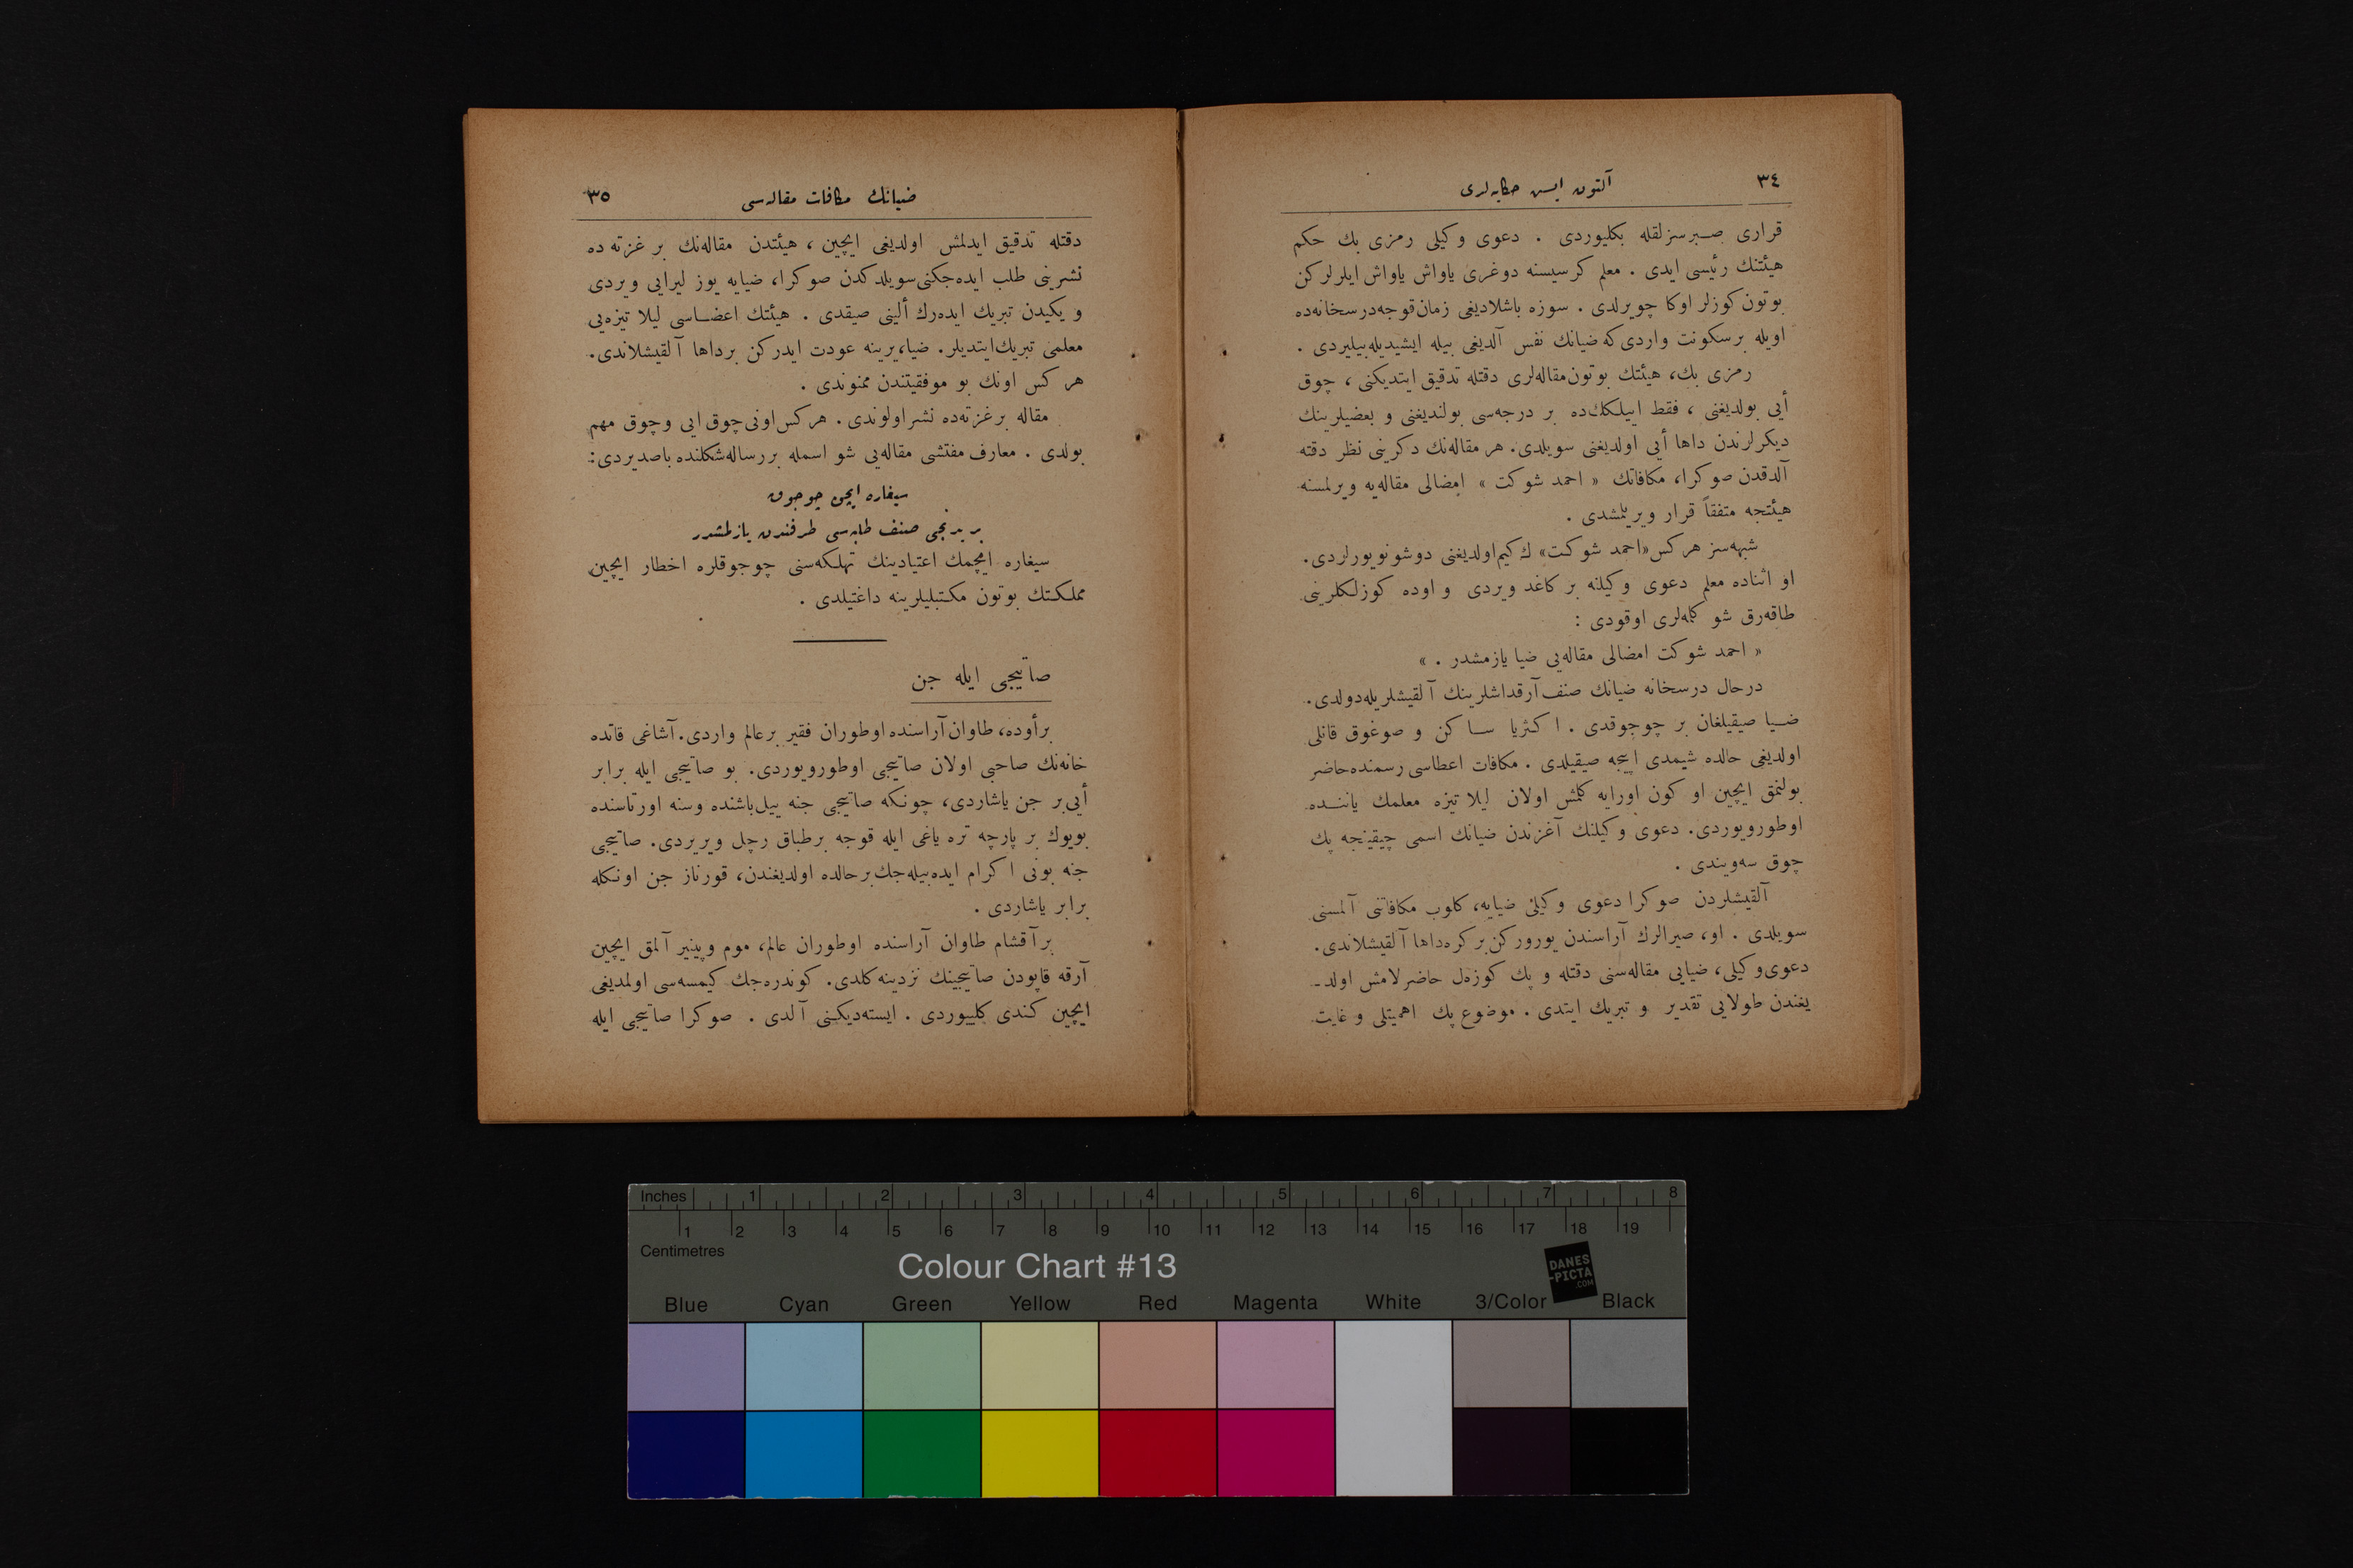 ٣٤
آلتون ایسن حکایه‌لری
قراری صبرسزلقله بکلیوردی . دعوی وکیلی رمزی بك حکم
هیئتنك رئیسی ایدی . معلم کرسیسنه دوغری یاواش یاواش ایلرلرکن
بوتون کوزلر اوکا چویرلدی . سوزه باشلادیغی زمان قوجه درسخانه‌ده
اویله برسکونت واردی که ضیانك نفس آلدیغی بیله ایشیدیله‌بیلیردی .
رمزی بك، هیئتك بوتون مقاله‌لری دقتله تدقیق ایتدیکنی ، چوق
أیی بولدیغنی ، فقط اییلکك‌ده بر درجه‌سی بولندیغنی و بعضیلرینك
دیکرلرندن داها أیی اولدیغنی سویلدی. هر مقاله‌نك دکرینی نظر دقته
آلدقدن صوکرا، مکافاتك « احمد شوکت » امضالی مقاله‌یه ویرلمسنه
هیئتجه متفقاً قرار ویریلمشدی .
شبهه‌سز هرکس «احمد شوکت» ك کیم اولدیغنی دوشونویورلردی.
او اثناده معلم دعوی وکیلنه بر کاغد ویردی و اوده کوزلکلرینی
طاقه‌رق شو کله‌لری اوقودی :
« احمد شوکت امضالی مقاله‌یی ضیا یازمشدر . »
درحال درسخانه ضیانك صنف آرقداشلرینك آلقیشلریله دولدی.
ضیا صیقیلغان بر چوجوقدی . اکثریا ساکن و صوغوق قانلی
اولدیغی حالده شیمدی اییجه صیقیلدی . مکافات اعطاسی رسمنده حاضر
بولنمق ایچین او کون اورایه کلمش اولان لیلا تیزه معلمك یاننده
اوطورویوردی. دعوی وکیلنك آغزندن ضیانك اسمی چیقینجه پك
چوق سه‌ویندی .
آلقیشلردن صوکرا دعوی وکیلی ضیایه، کلوب مکافاتنی آلمسنی
سویلدی . او، صیرالرك آراسندن یورورکن بر کره داها آلقیشلاندی.
دعوی وکیلی، ضیایی مقاله‌سنی دقتله و پك کوزه‌ل حاضرلامش اولد-
یغندن طولایی تقدیر و تبریك ایتدی . موضوع پك اهمیتلی و غایت
ضیانك مکافات مقاله‌سی
٣٥
دقتله تدقیق ایدلمش اولدیغی ایچین ، هیئتدن مقاله‌نك بر غزته ده
نشرینی طلب ایده‌جکنی سویلدکدن صوکرا، ضیایه یوز لیرایی ویردی
و یکیدن تبریك ایده‌رك ألینی صیقدی . هیئتك اعضاسی لیلا تیزه‌یی
معلمی تبریك ایتدیلر. ضیا، یرینه عودت ایدرکن برداها آلقیشلاندی.
هر کس اونك بو موفقیتندن ممنوندی .
مقاله بر غزته‌ده نشر اولوندی . هرکس اونی چوق ایی وچوق مهم
بولدی . معارف مفتشی مقاله‌یی شو اسمله بررساله شکلنده باصدیردی:
سیغاره ایچن چوجوق
بر برنجی صنف طلبه‌سی طرفندن یازلمشدر
سیغاره ایچمك اعتیادینك تهلکه‌سنی چوجوقلره اخطار ایچین
مملکتك بوتون مکتبلیلرینه داغتیلدی .
صاتیجی ایله جن
برأوده، طاوان آراسنده اوطوران فقیر برعالم واردی. آشاغی قاتده
خانه‌نك صاحبی اولان صاتیجی اوطورویوردی. بو صاتیجی ایله برابر
أیی بر جن یاشاردی، چونکه صاتیجی جنه ییل باشنده وسنه اورتاسنده
بویوك بر پارچه تره یاغی ایله قوجه برطباق رچل ویریردی. صاتیجی
جنه بونی اکرام ایده‌بیله‌جك بر حالده اولدیغندن، قورناز جن اونکله
برابر یاشاردی .
برآقشام طاوان آراسنده اوطوران عالم، موم وپینیر آلمق ایچین
آرقه قاپودن صاتیجینك نزدینه کلدی. کوندره‌جك کیمسه‌سی اولمدیغی
ایچین کندی کلییوردی . ایسته‌دیکنی آلدی . صوکرا صاتیجی ایله
Inches 1 2 3 4 5 6 7 8
1 2 3 4 5 6 7 8 9 10 11 12 13 14 15 16 17 18 19
Centimetres
Colour Chart #13
DANES
-PICTA
.COM
Blue Cyan Green Yellow Red Magenta White 3/Color Black